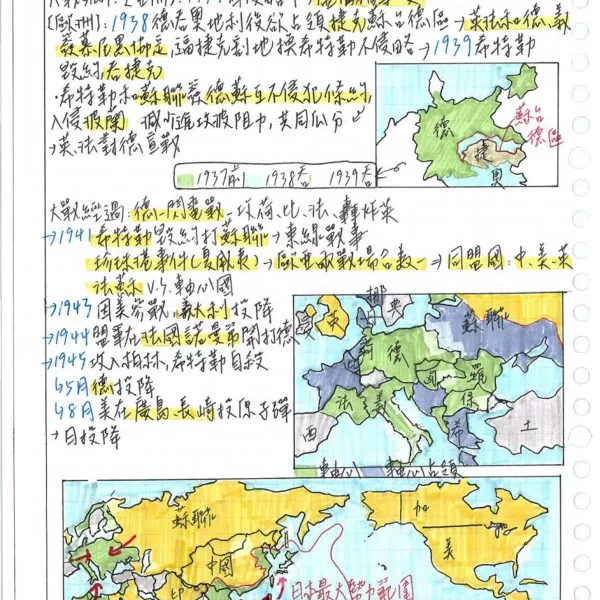 [歐洲]：1938德吞奧地利後欲占領捷克蘇台德區→英法和德、義
簽慕尼黑協定，逼捷克割地換希特勒不侵略→1939希特勒
毀約，吞捷克
•希特勒和蘇聯簽德蘇互不侵犯條約，
入侵波蘭 減少進攻波阻力，共同瓜分
→英、法對德宣戰
德
捷
奧
蘇台
德區
1937前 1938吞 1939吞
大戰經過：德－閃電戰－攻荷、比、法、轟炸英
→1941 希特勒毀約打蘇聯→東線戰事
珍珠港事件→歐亞兩戰場合一→同盟國：中、美、英
法蘇 v.s. 軸心國
→1943 因美參戰，義大利投降
→1944 盟軍在法國諾曼第開打德
→1945 攻入柏林，希特勒自殺
5月德投降
8月美在廣島、長崎投原子彈
→日投降
挪
英
蘇聯
荷
德
匈
羅
法
義
保
西
希
土
軸心 軸心占領
蘇聯
中國
印
加
美
日本最大勢力範圍